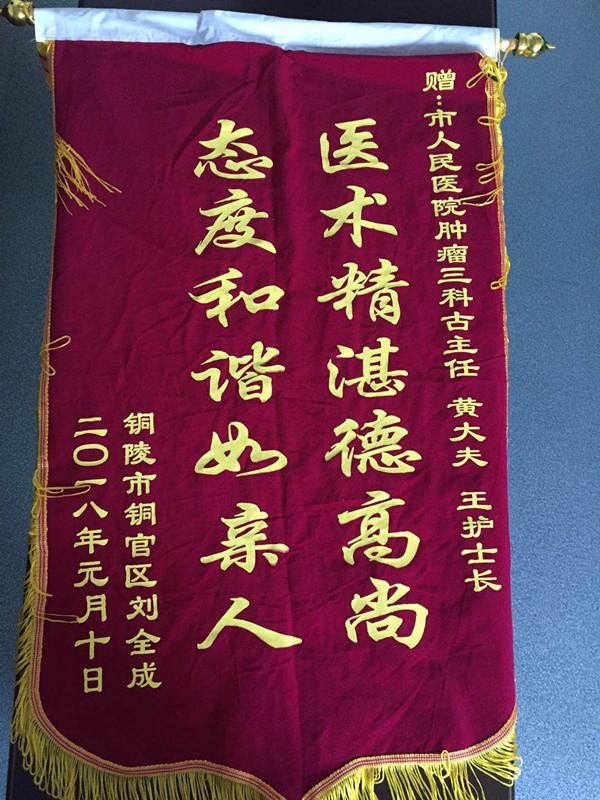 赠:市人民医院肿瘤三科古主任 黄大夫 王护士长
医术精湛德高尚
态度和谐如亲人
铜陵市铜官区刘全成
二〇一八年元月十日